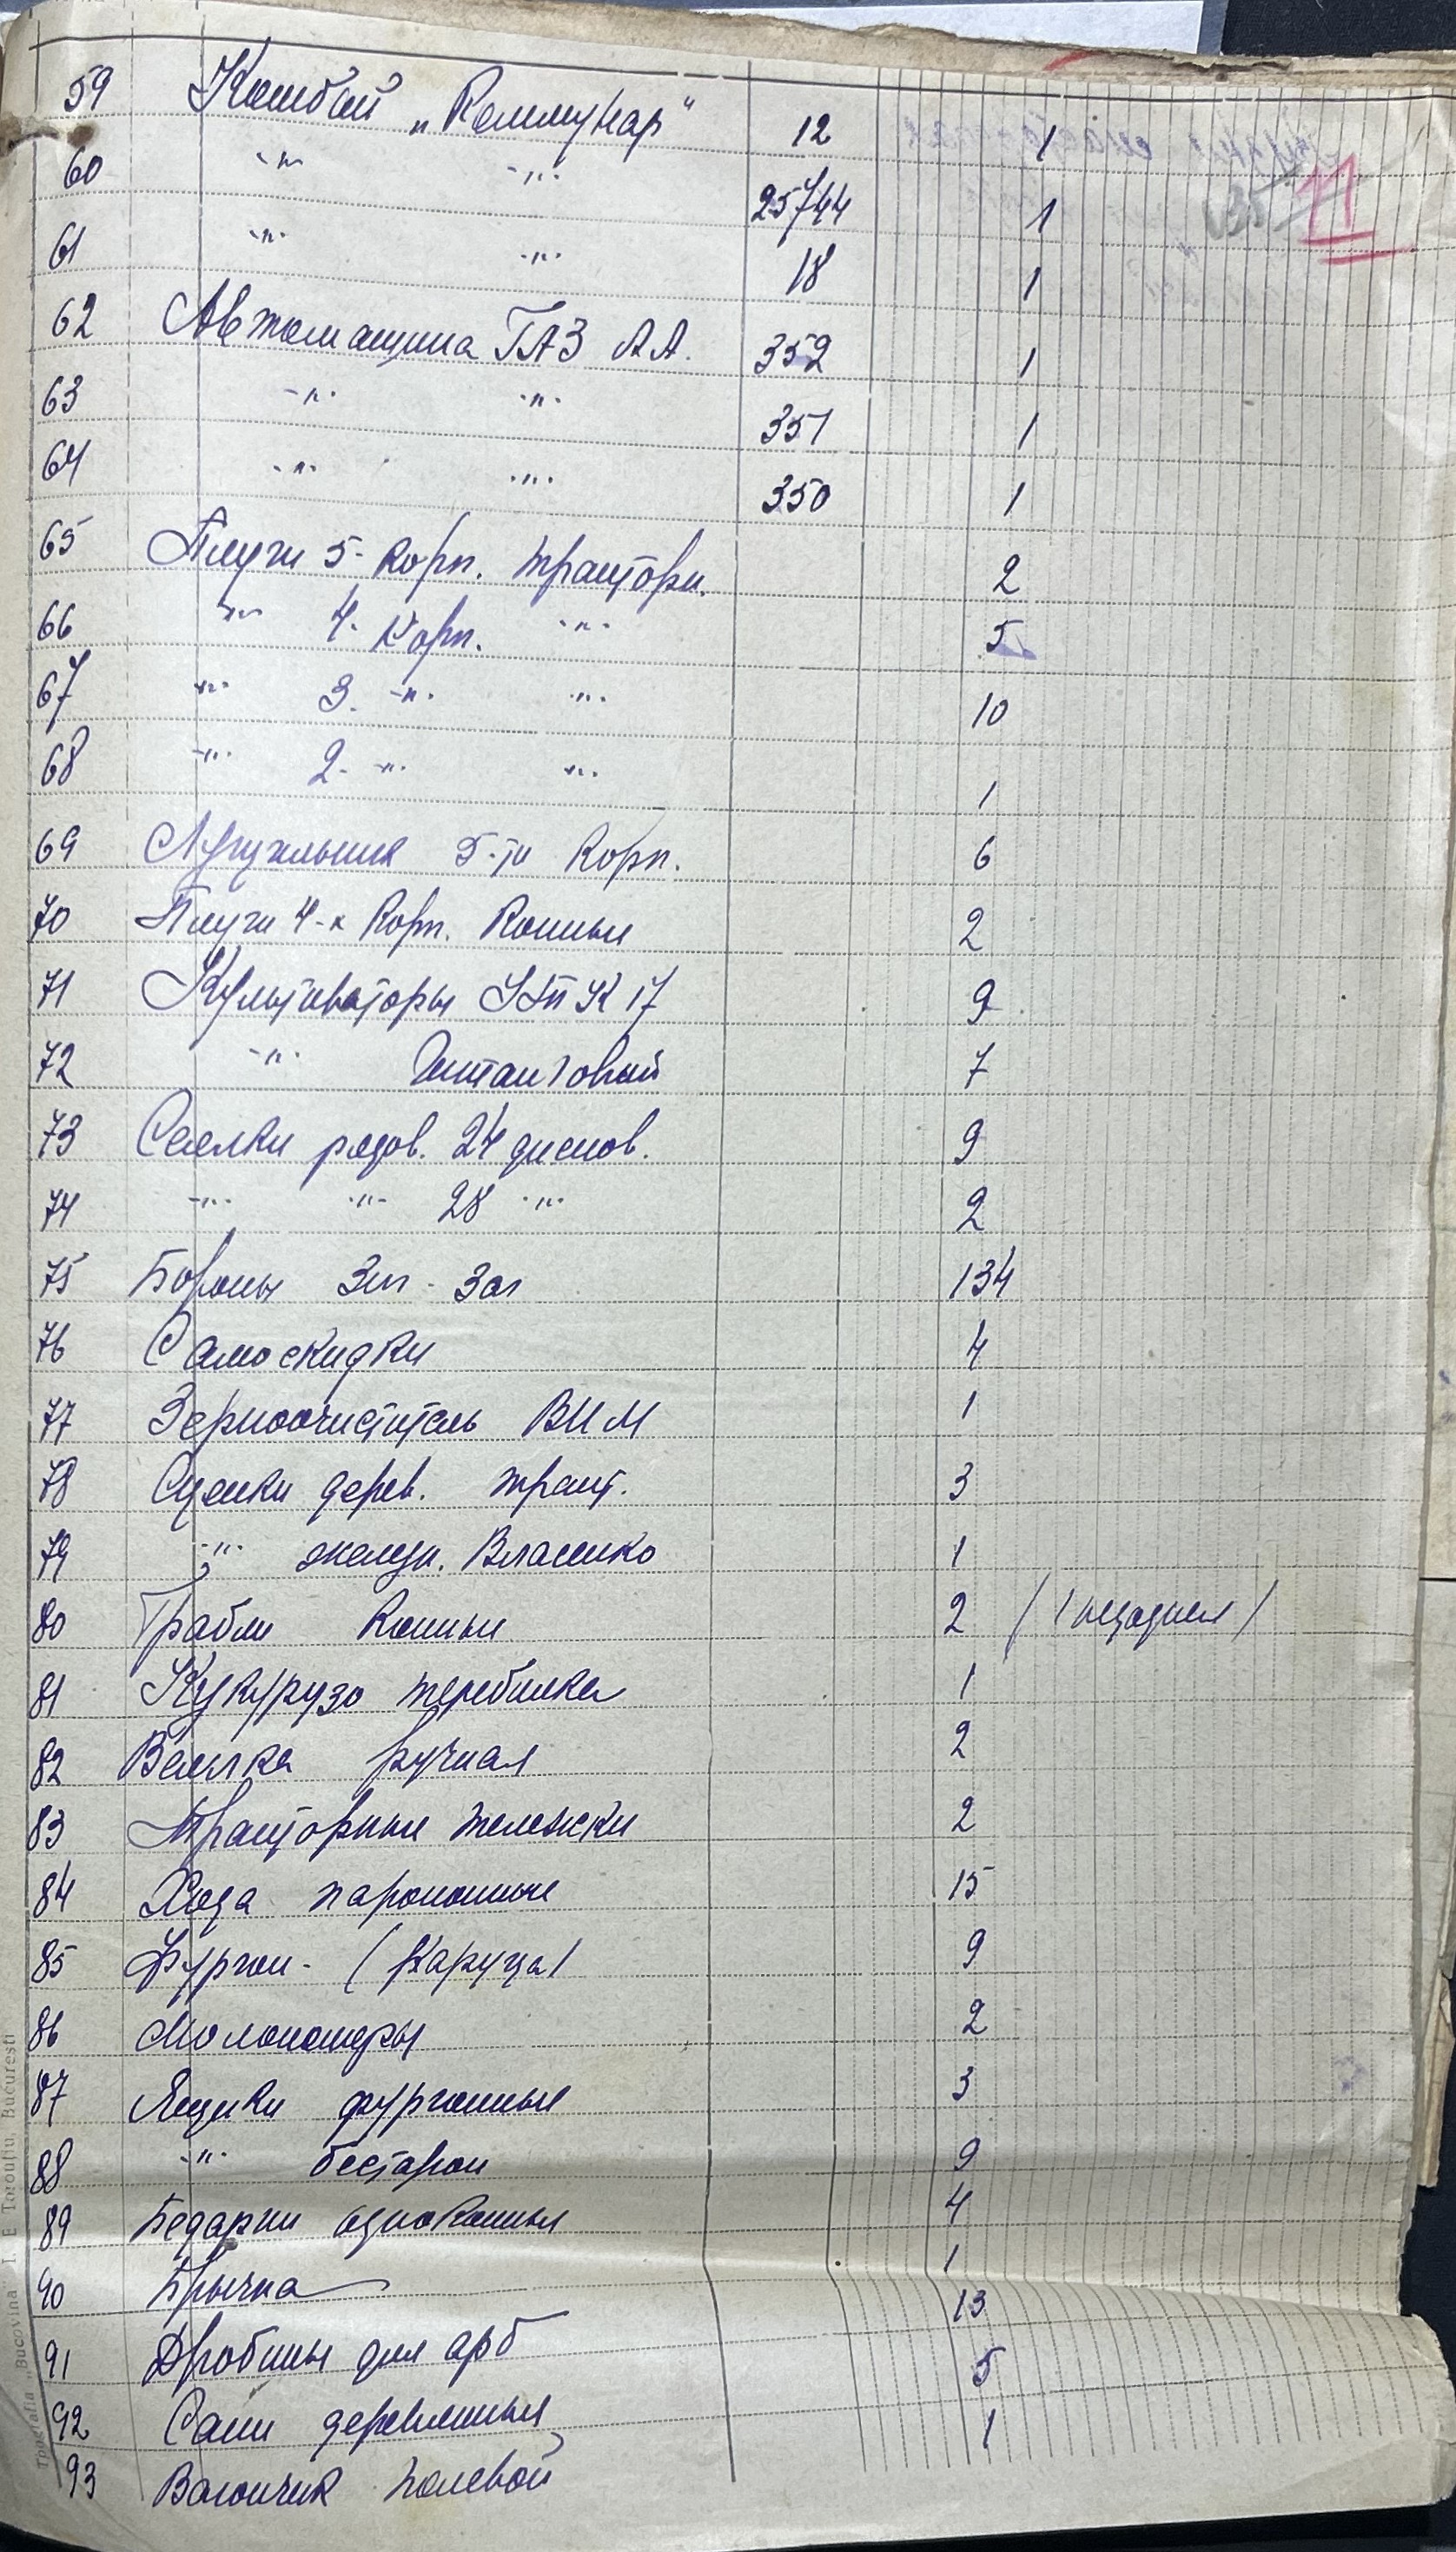 11
59 Комбай „Коммунар" 12 1
60 -"- -"- 25744 1
61 -"- -"- 18 1
62 Автомашина ГАЗ АА. 352 1
63 -"- -"- 351 1
64 -"- -"- 350 1
65 Плуги 5- корп. тракторн. 2
66 -"- 4- корп. -"- 5
67 -"- 3. -"- -"- 10
68 -"- 2- -"- -"- 1
69 Лущильник 5-ти корп. 6
70 Плуги 4-х корп. конные 2
71 Культиваторы УПК 17 9
72 -"- Штанговый 7
73 Сеялки рядов. 24 дисков. 9
74 -"- -"- 28 -"- 2
75 Бороны Зиг-Заг 134
76 Самоскидки 4
77 Зерноочиститель ВИМ 1
78 Сцепки дерев. тракт. 3
79 -"- железн. Власенко 1
80 Грабли конные 2 (1 негодная)
81 Кукурузо теребилка 1
82 Веялка ручная 2
83 Тракторные тележки 2
84 Хода пароконные 15
85 Фургон- (каруца) 9
86 2
87 Ящики фургонные 3
88 -"- бестарон 9
89 Бедарки одноконные 4
90 Бричка 1
91 Дробины для арб 13
92 Сани деревянные 5
93 Вагончик полевой 1
Tipografia „Bucovina" I. E Torouţiu, Bucureşti